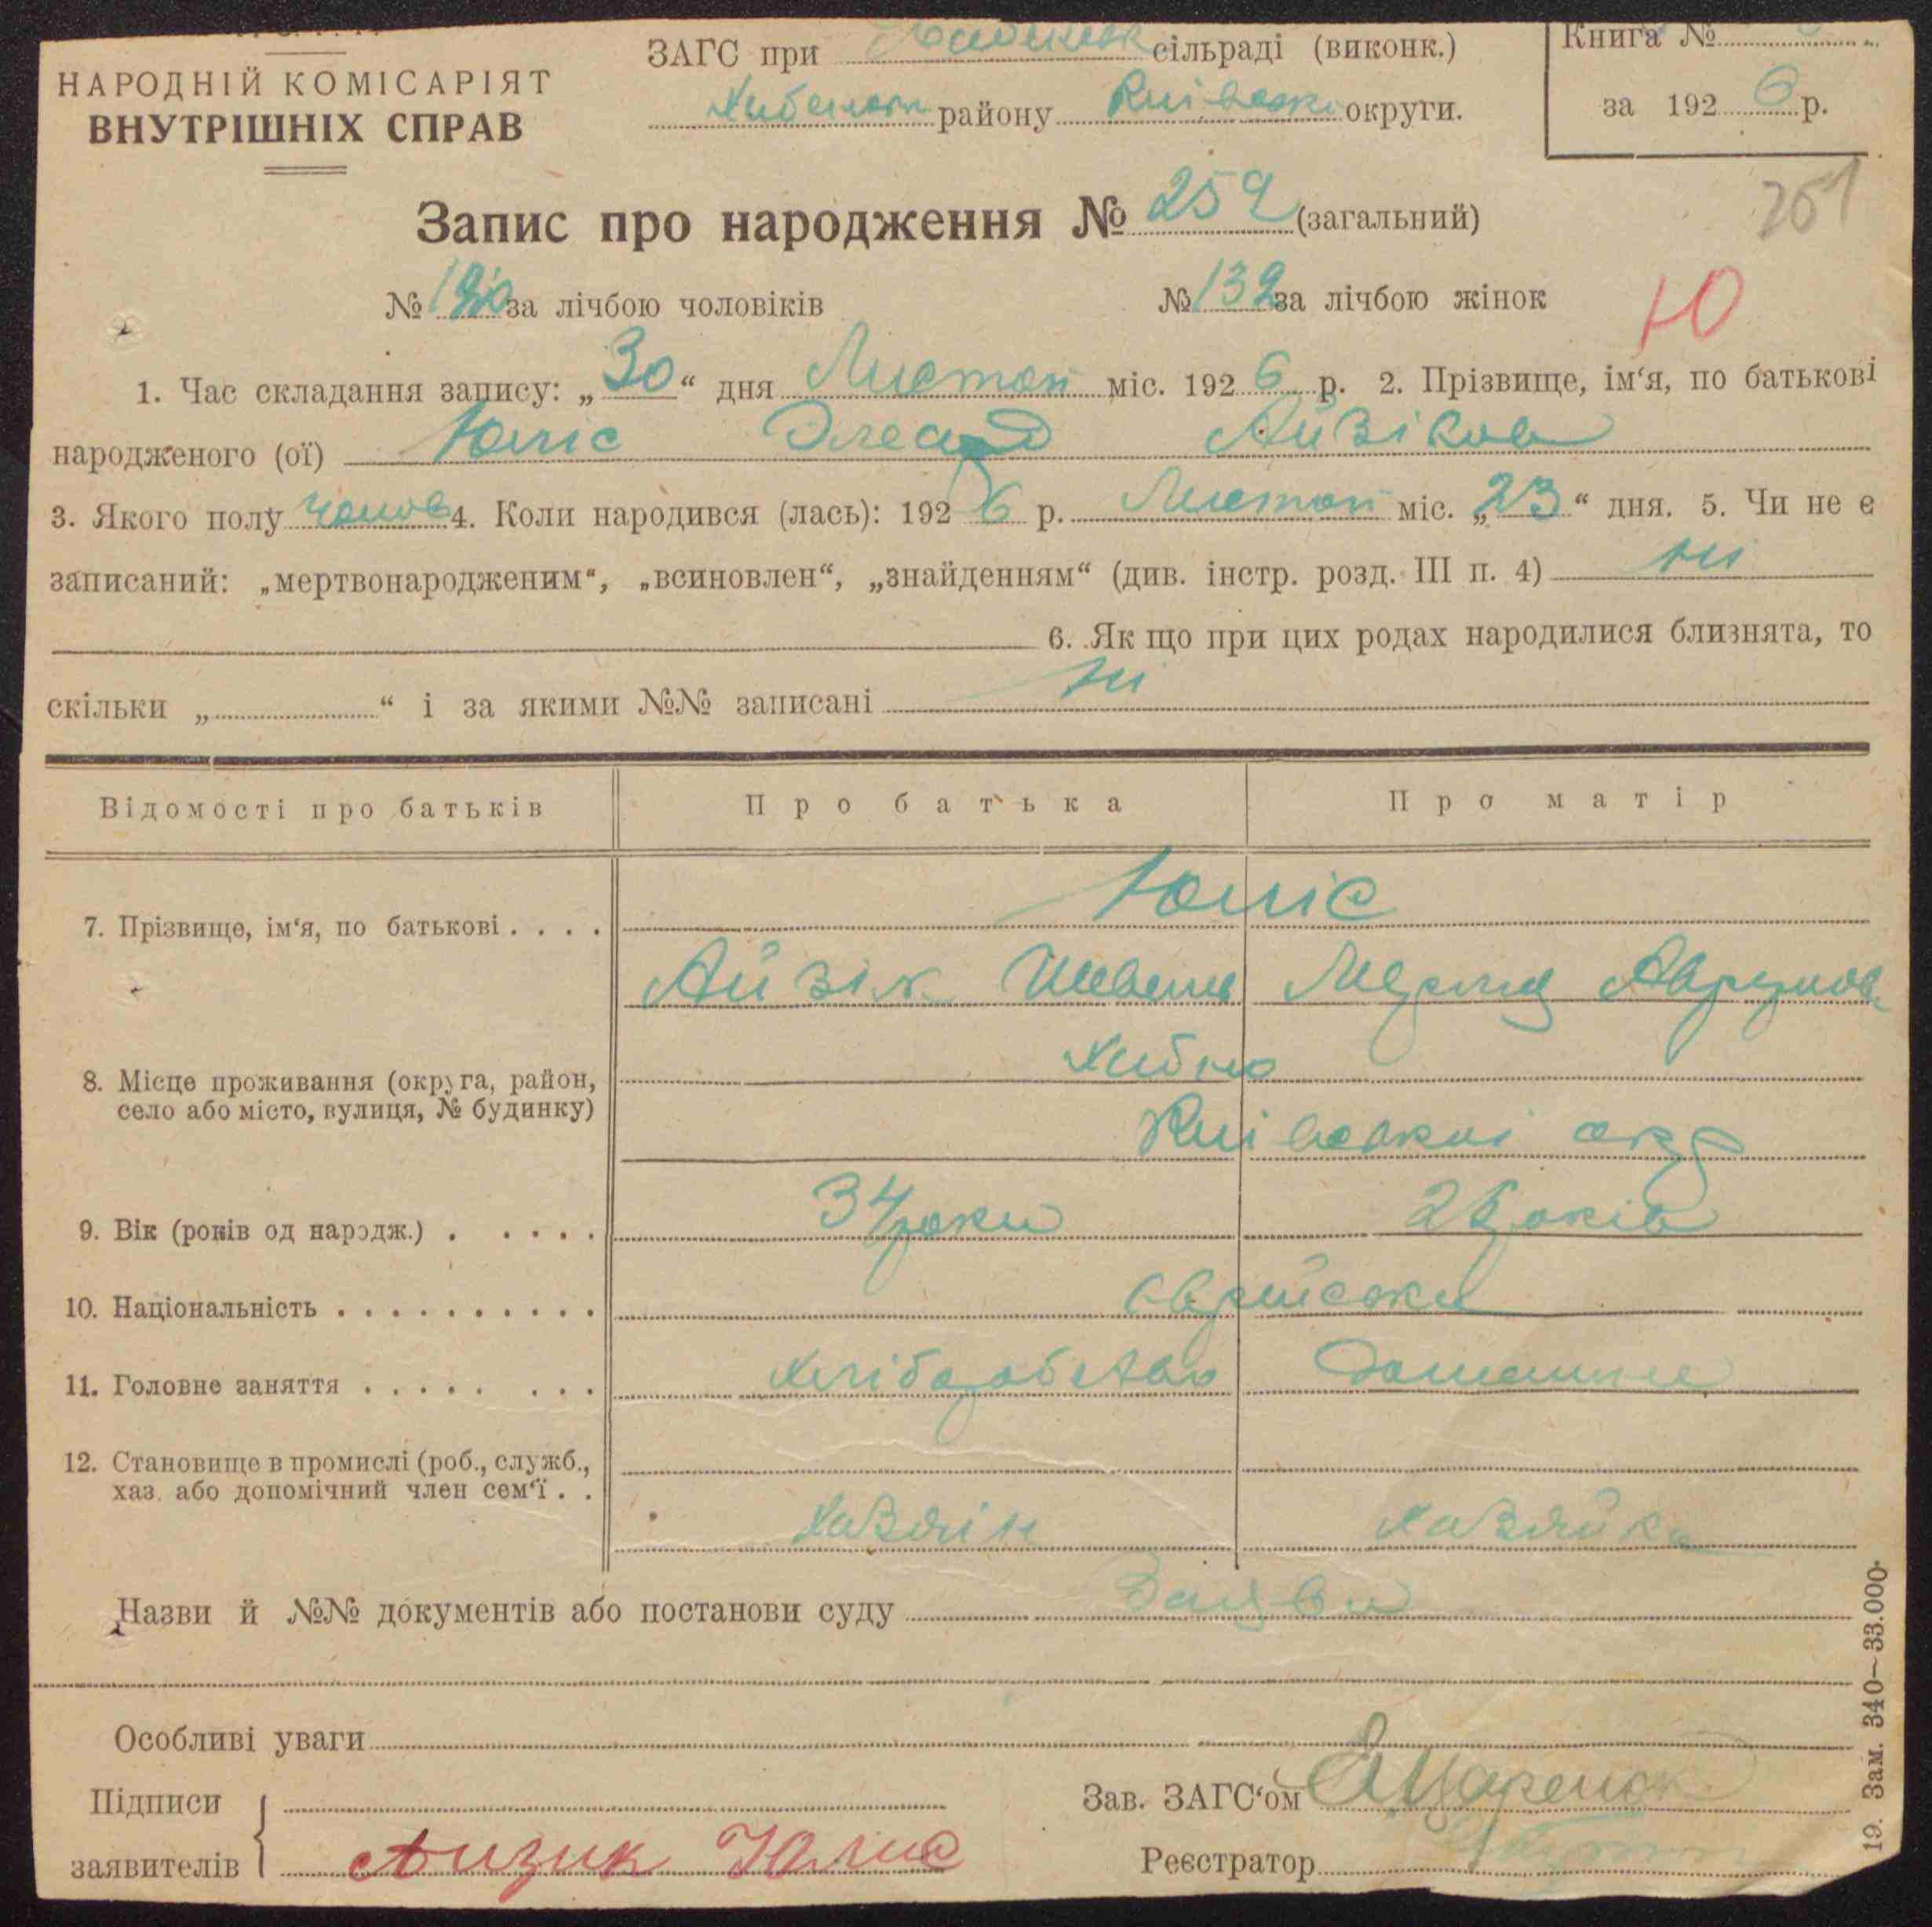 НАРОДНІЙ КОМІСАРІЯТ
ВНУТРІШНІХ СПРАВ
ЗАГС при сільраді (виконк.)
району Київськ округи.
Книга №
за 192 6 р.
Запис про народження № 259 (загальний)
251
№ за лічбою чоловіків № 139 за лічбою жінок
Ю
1. Час складання запису: „ 30 “ дня Листоп міс. 192 6 р. 2. Прізвище, ім‘я, по батькові
народженого (ої) Юліс Айзіков
3. Якого полу чолов 4. Коли народився (лась): 192 6 р. Листоп міс. „ 23 “ дня. 5. Чи не є
записаний: „мертвонародженим“, „всиновлен“, „знайденням“ (див. інстр. розд. III п. 4) ні
6. Як що при цих родах народилися близнята, то
скільки „ “ і за якими №№ записані ні
Відомості про батьків Про батька Про матір
7. Прізвище, ім‘я, по батькові . . . . Юліс
Айзік
8. Місце проживання (округа, район,
село або місто, вулиця, № будинку)
Хибно
Київської окр
9. Вік (років од народж.) . . . . . 34 роки років
10. Національність . . . . . . . . . . Єврейськ
11. Головне заняття . . . . . . . . Хлібороб
12. Становище в промислі (роб., служб.,
хаз. або допомічний член сем‘ї . .
Хазяїн хазяйка
Назви й №№ документів або постанови суду Заяви
Особливі уваги
Підписи
заявителів Айзик Юлис
Зав. ЗАГС‘ом
Реєстратор
19. Зам. 340—33.000.